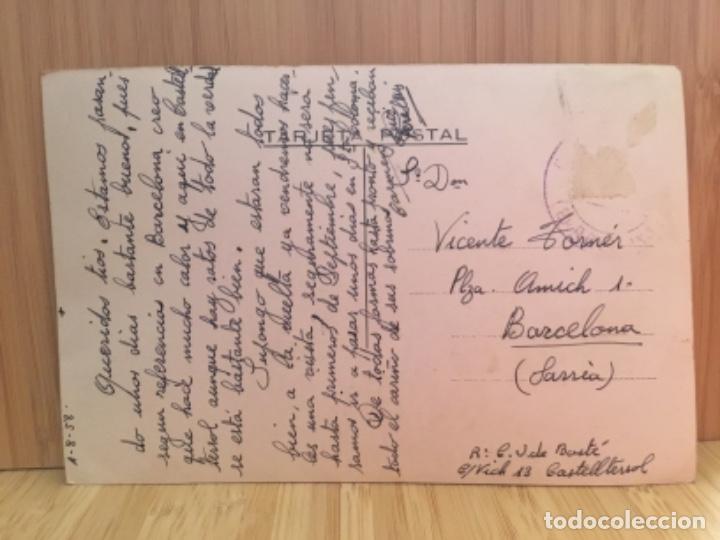 1-8-58.
Queridos tios: Estamos pasan-
do unos dias bastante buenos, pues
segun referencias en Barcelona creo
que hace mucho calor y aqui en Castell-
tersol aunque hay ratos de todo la verdad
se está bastante bien.
Supongo que estaran todos
bien, a la vuelta ya vendremos hacer-
les una visita seguramente no sera
hasta primeros de Septiembre, pues pen-
samos ir a pasar unos dias en
De todas formas hasta pronto y reciban
todo el cariño de sus sobrinos
TARJETA POSTAL
Sr. Don
Vicente Tornér
Plza. Amich 1-
Barcelona
(Sarriá)
R: C. J de Bosté
c/Vich 13 Castelltersol
todocoleccion
todocoleccion.net